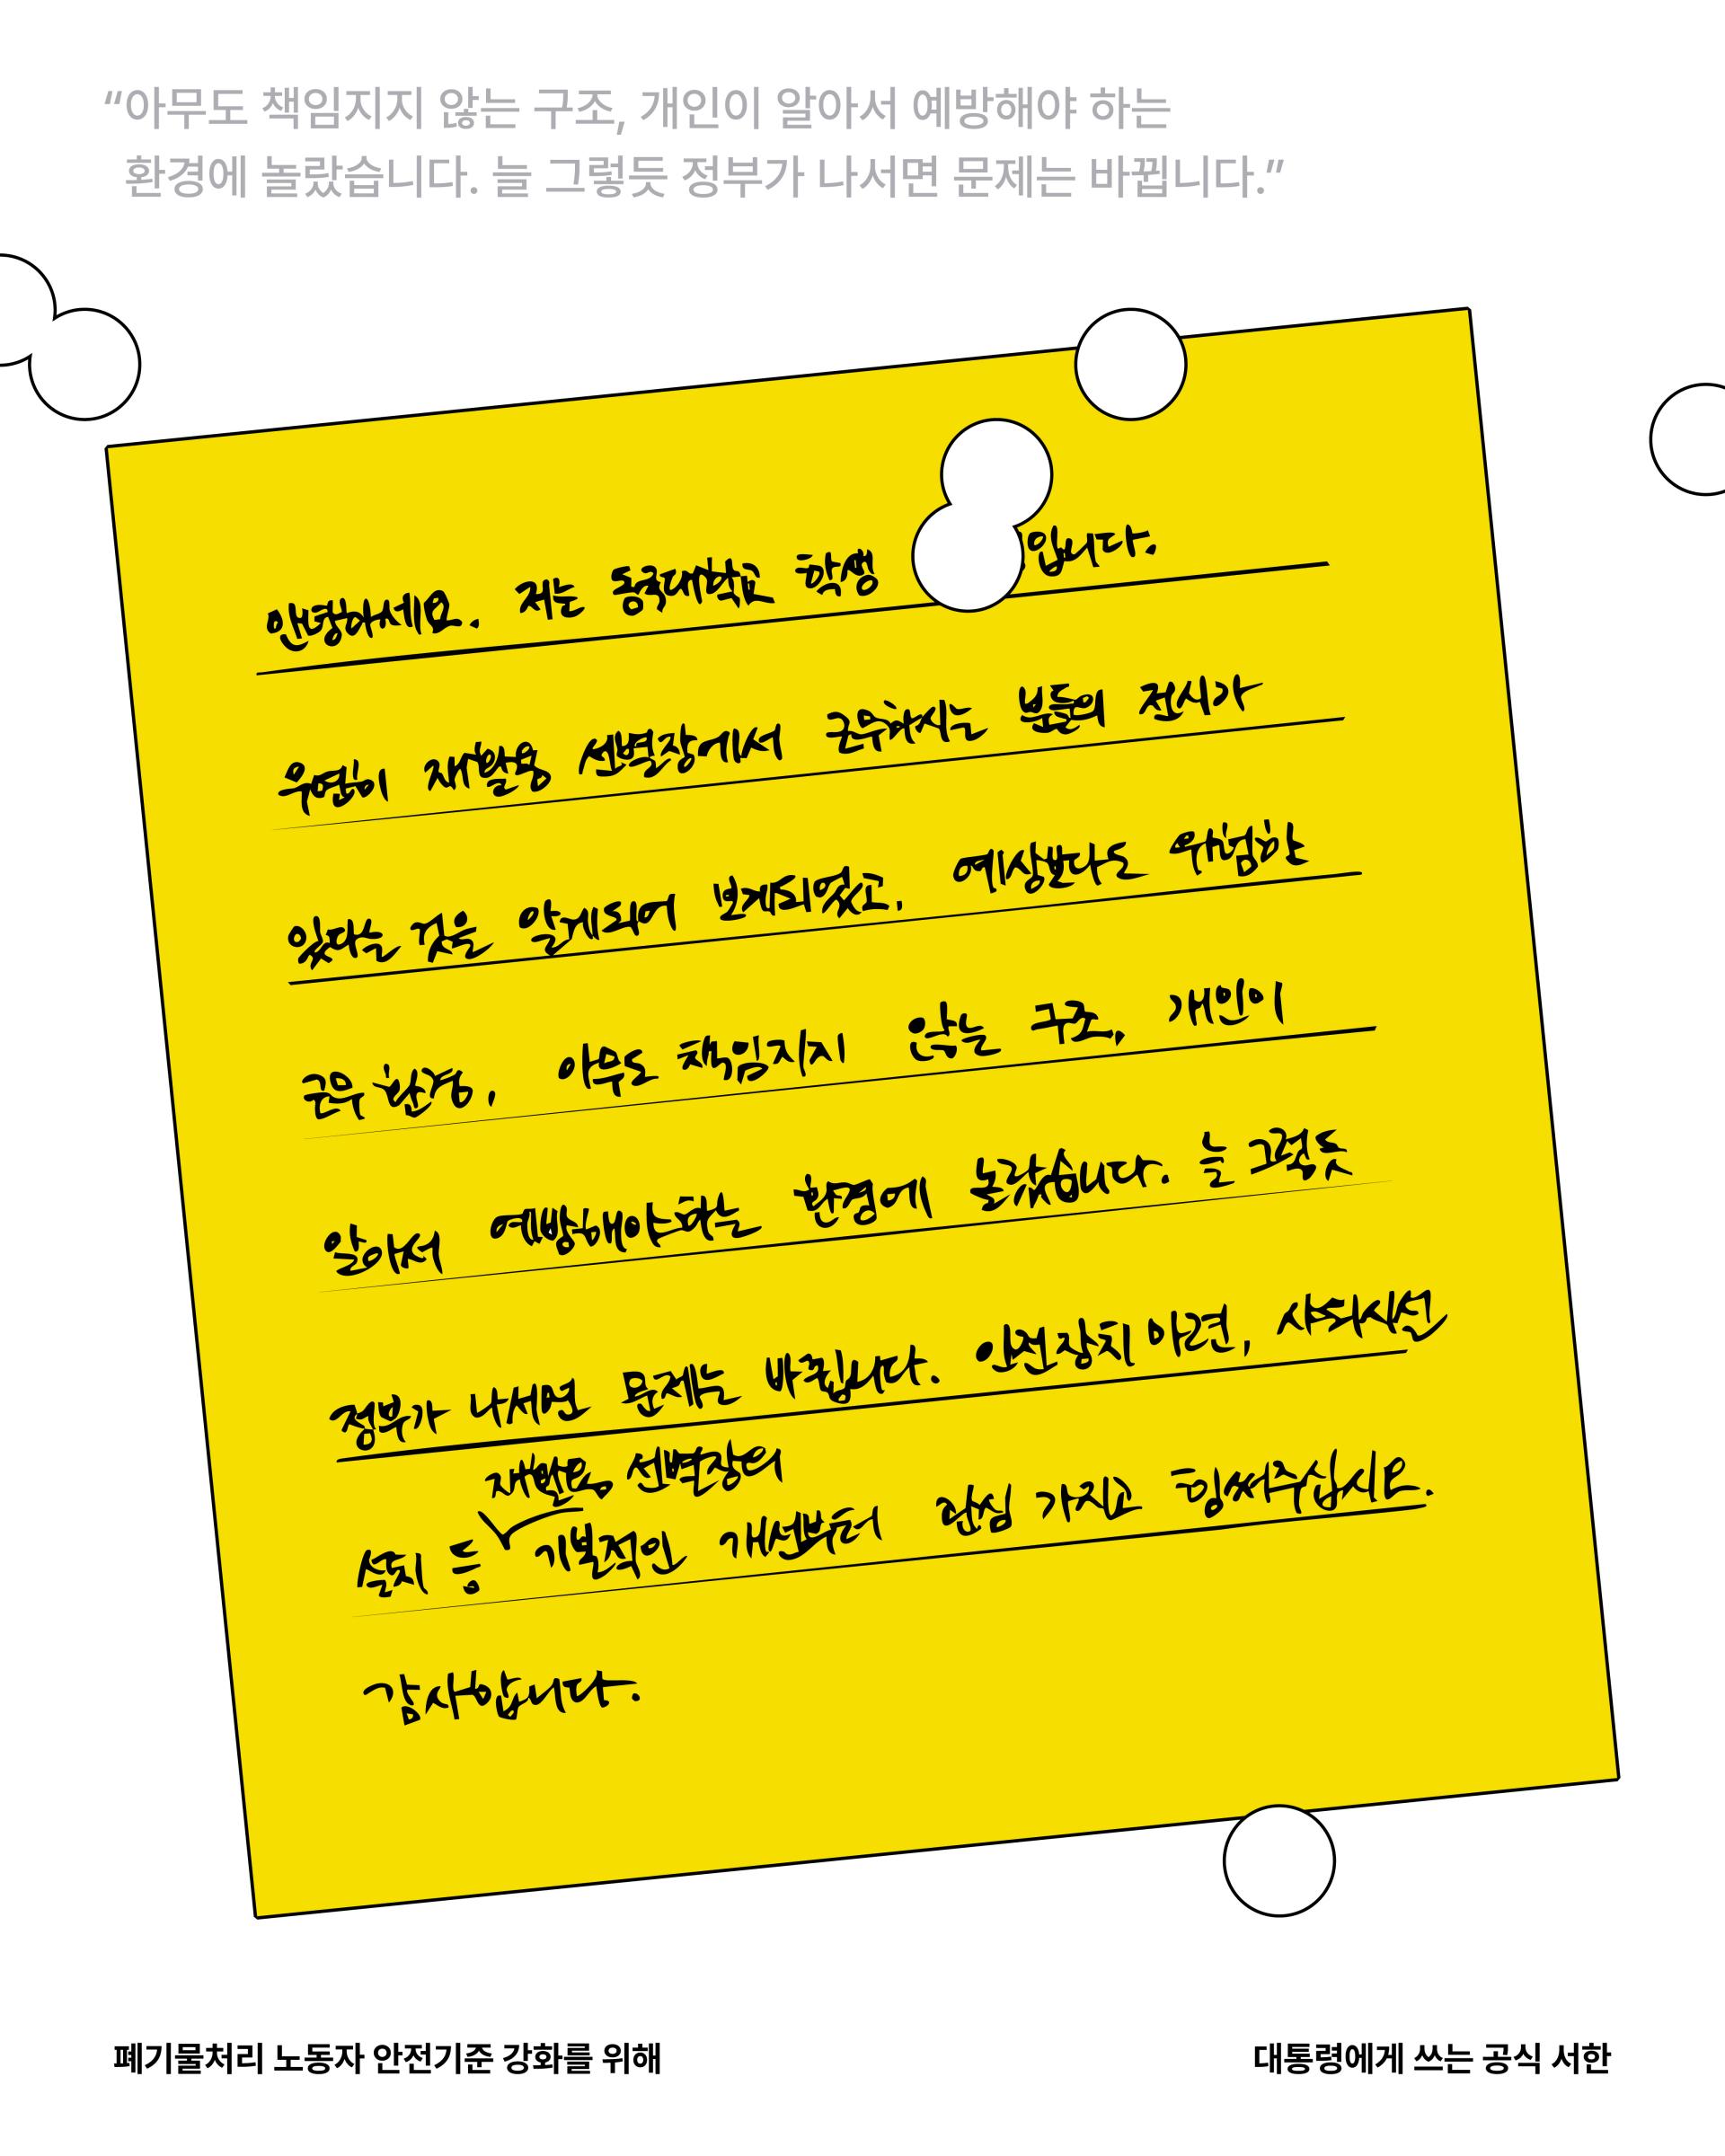 “아무도 책임지지 않는 구조, 개인이 알아서 예방해야 하는
환경에 놀랐습니다. 늘 그렇듯 정부가 나서면 문제는 바뀝니다.”
안녕하세요. 저는 동대문구 학생 입니다.
우연히 재활용 선별장에서 근무하는 분들의 기사가
있다는 것을 알게되어 보게되었고, 예상보다도 위험한
근무 환경, 아무도 책임지지 않는 구조, 개인이
알아서 예방해야하는 환경에 놀랐습니다. 늘 그렇듯
정부가 나서면 문제는 바뀝니다. 안전장치 마련, 사회시선
재활용 선별장의
숨지 등 개별적인 개선부터 관심 가지고 힘써주십시오.
감사합니다.
폐기물처리 노동자 안전기준 강화를 위해
대통령에게 쓰는 공식 서한